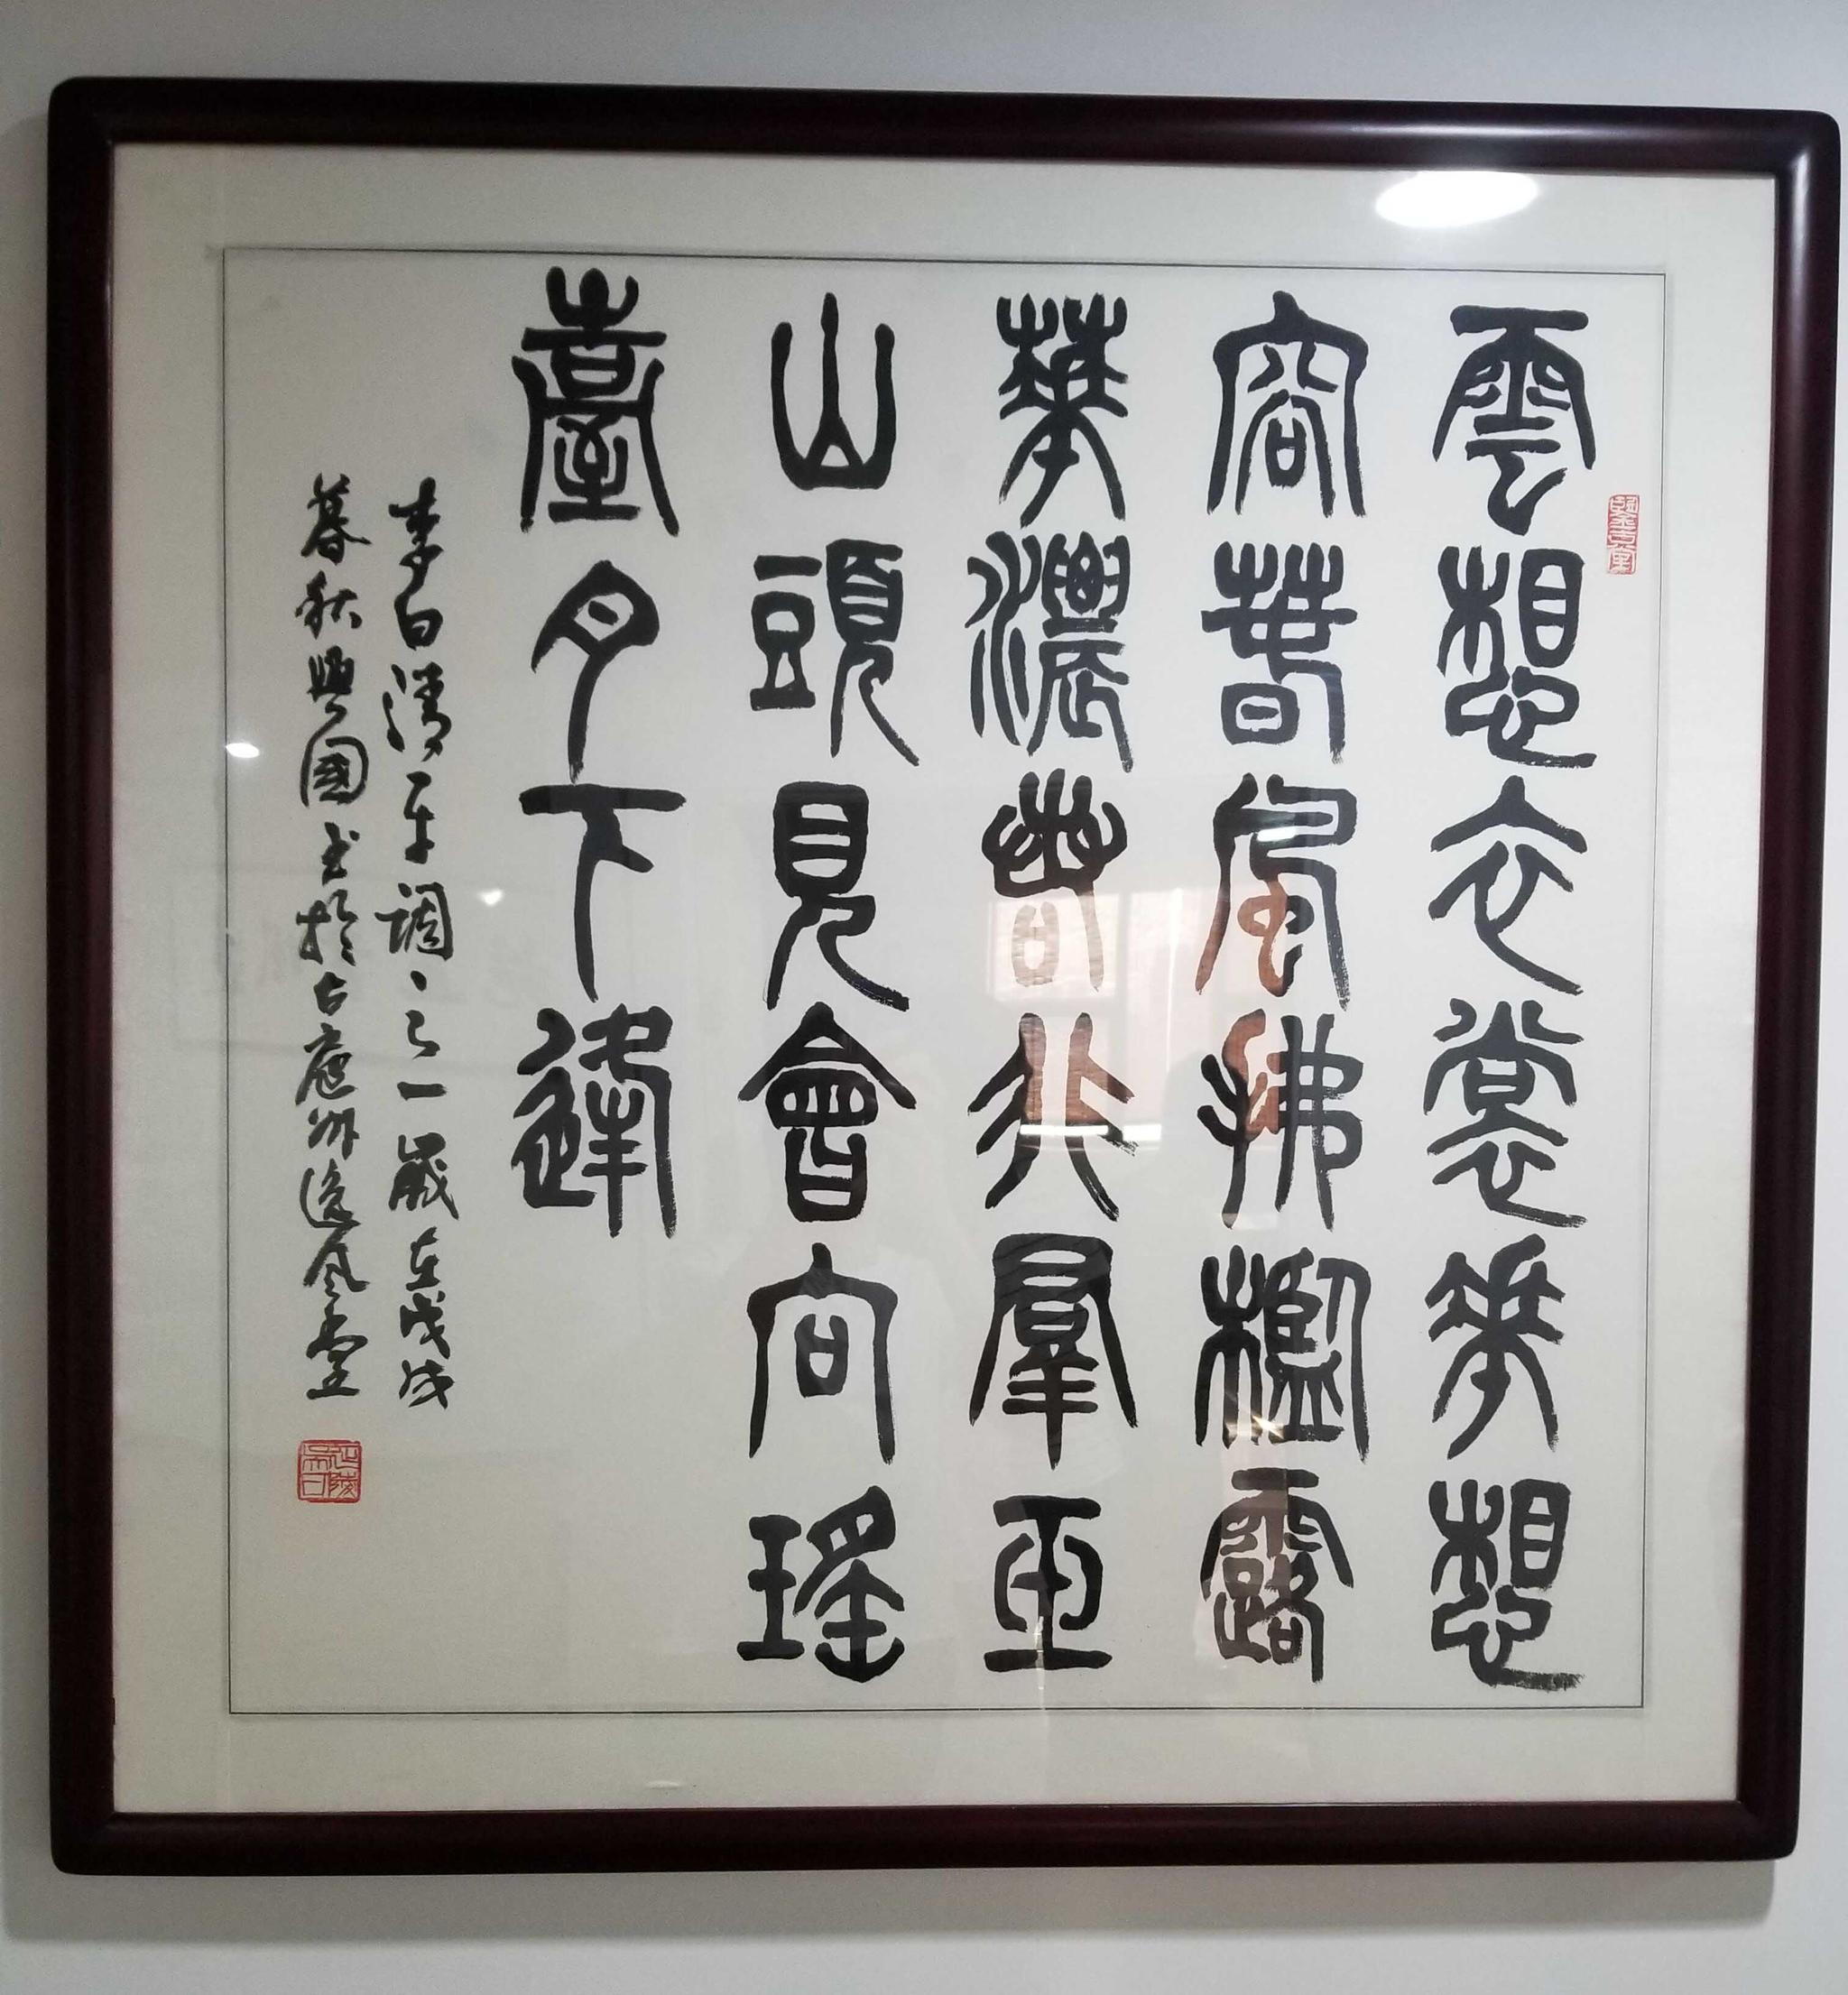 雲想衣裳花想
容春風拂檻露
華濃若非羣玉
山頭見會向瑤
臺月下逢
李白清平調之一歲在戊戌
暮秋興國書於古廬州逸風堂